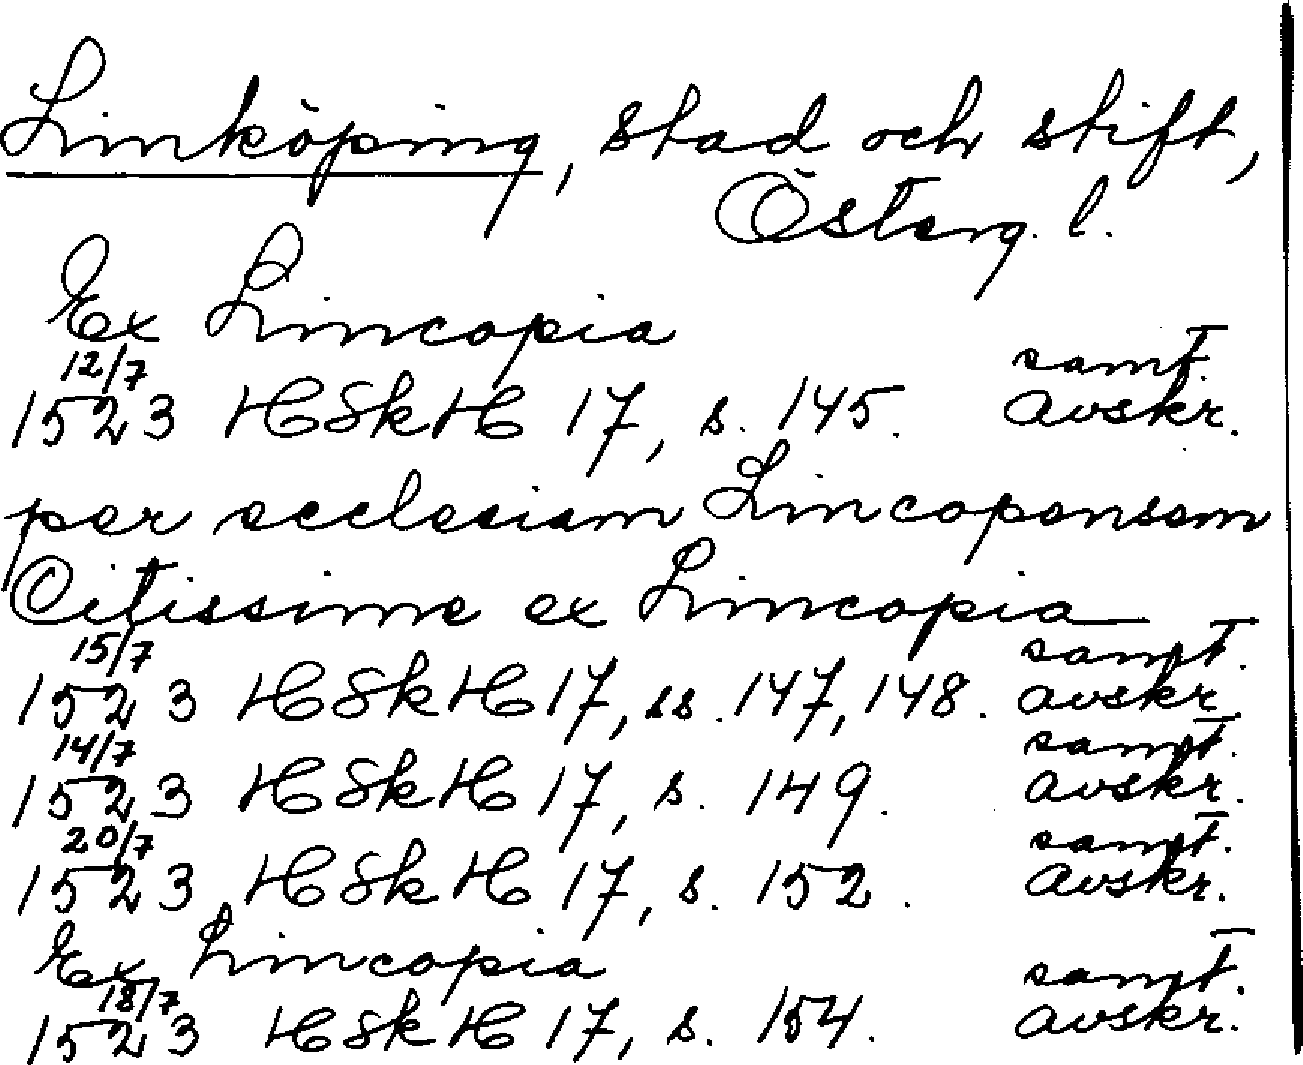 Linköping, stad och stift,
Österg. l.
Ex Lincopia
12/7 samt.
1523 HSkH 17, s. 145. avskr.
per ecclesiam Lincopensem
Citissime ex Lincopia
15/7 samt.
1523 HSkH 17, ss. 147, 148. avskr.
14/7 samt.
1523 HSkH 17, s. 149. avskr.
20/7 samt.
1523 HSkH 17, s. 152. avskr.
Ex Lincopia
18/7 samt.
1523 HSkH 17, s. 154. avskr.